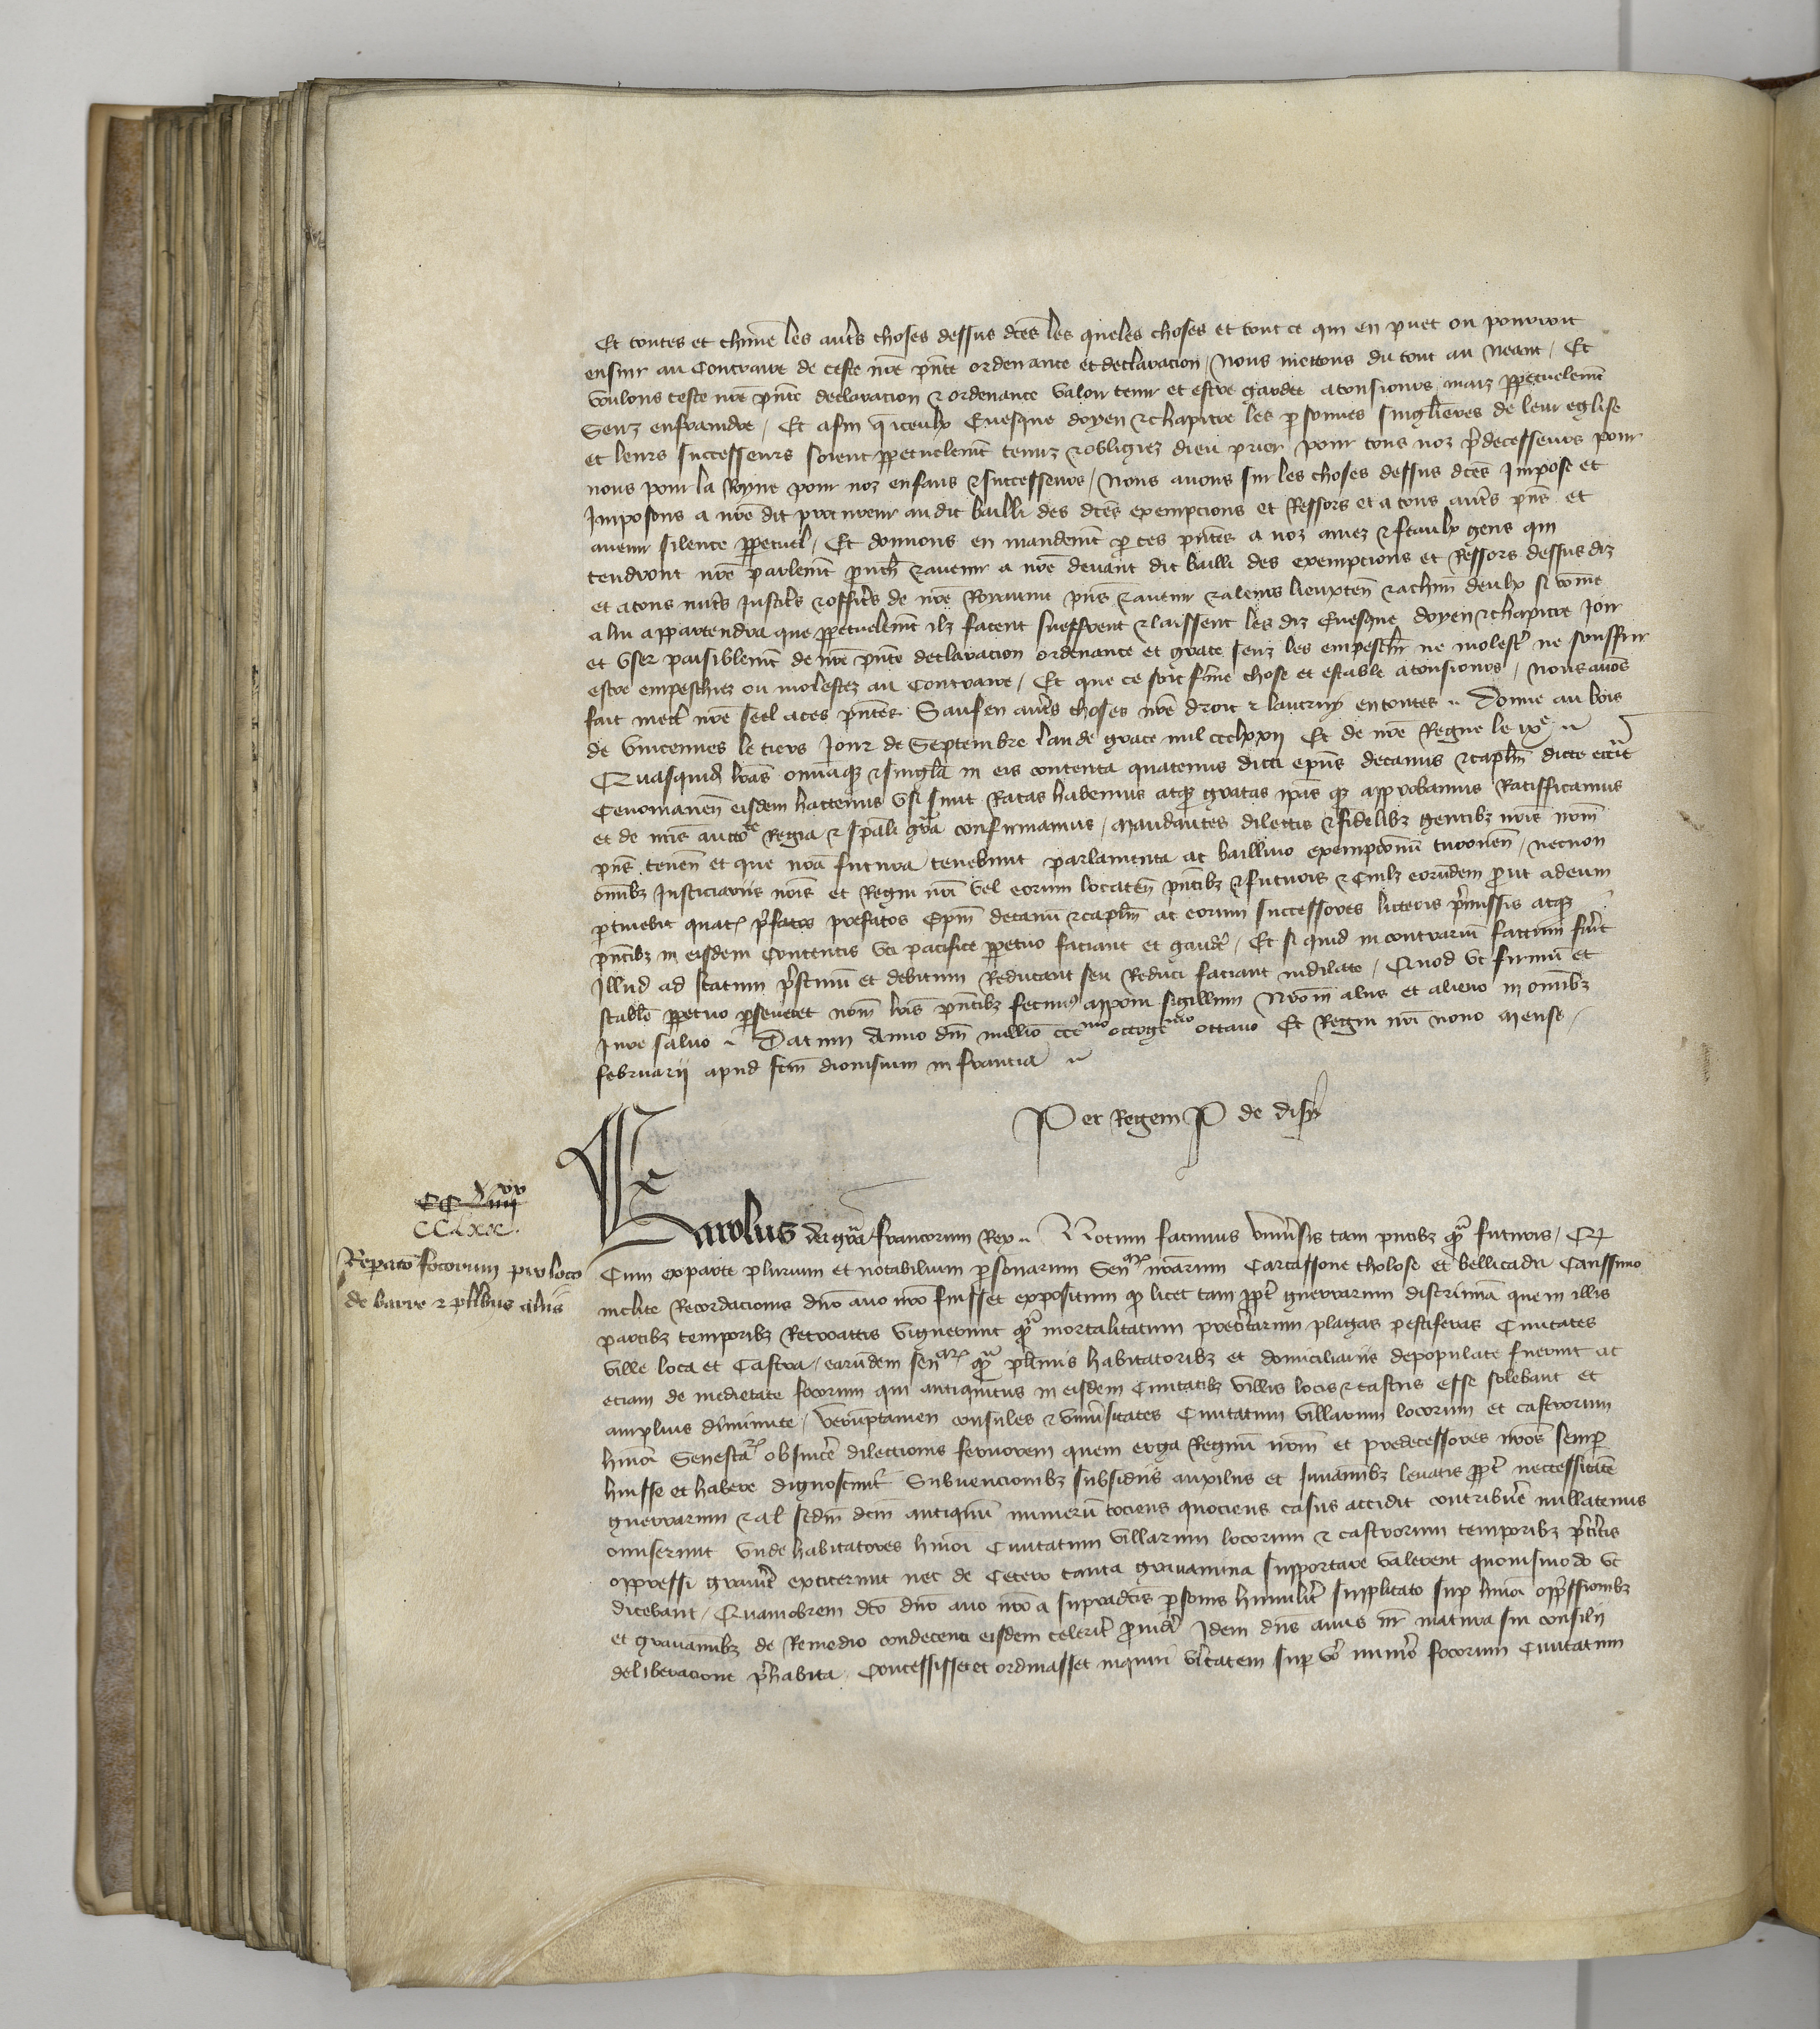 Et toutes et chũne les autˀs choses dessus dc̃es les queles choses et tout ce qui en puet ou pourroit
ensuir au Contraire de ceste nr̃e pn̄te ordenance et declaracion / Nous mettons du tout au Neant / Et
voulons ceste nr̃e pn̄te declaracion ⁊ ordenance valoir tenir et estre gardee a tousiours maiz ꝑpetuelem̃t
Senz enfraindre / Et afin q̃ iceulx Euesque doyen ⁊ chapitre les ꝑsonnes singlieres de leur eglise
et leurs successeurs soient ꝑpetuelem̃t tenuz ⁊ obligiez dieu prier pour tous noz p̃decesseurs pour
nous pour la Royne pour noz enfans ⁊ successeurs / Nous auons sur les choses dessus dc̃es Impose et
Imposons a nr̃e dit procureur au dit bailli des dc̃es exempcions et Ressors et a tous autˀs pn̄s et
auenir silence ꝑpetuel / Et donnons en mandem̃t ꝑ ces pn̄tes a noz amez ⁊ feaulx gens qui
tendront nr̃e parlem̃t ⁊ auenir a nr̃e deuant dit bailli des exempcions et Ressors dessus diz
et a tous autˀs Justicˀs ⁊ officˀs de nr̃e Royaume pn̄s ⁊ auenir ⁊ a leurs lieuxten̄ ⁊ a chũn deulx si com̃e
a lui appartendra que ꝑpetuelem̃t ilz facent sueffrent ⁊ laissent les diz Euesque doyen ⁊ chapitre Joir
et vser paisiblem̃t de nr̃e pn̄te declaracion ordenance et grace senz les empesch̃r ne molestˀ ne souffrir
estre empeschiez ou molestez au Contraire / Et que ce soit ferme chose et estable a tousiours / Nous auõs
fait mectˀ nr̃e seel a ces pn̄tes Sauf en autˀs choses nr̃e droit ⁊ lautruy en toutes .. Donne au bois
de vincennes le tiers Jour de Septembre lan de grace mil ccclxxij Et de nr̃e Regne le ixͤ ..
Quasquid̃ lr̃as om̃iaqꝫ ⁊ singl̃a in eis contenta quatenus dicti ep̃us decanus ⁊ capl̃m dicte ecc̃ie
Cenomaneñ eisdem hactenus vsi sunt Ratas habemus atqꝫ gratas ip̃as qꝫ approbamus Ratifficamus
et de nr̃is auctͭͤ Regia ⁊ sp̃ali gr̃a confirmamus / Mandantes dilectis ⁊ fidelibꝫ gentibꝫ nr̃is nr̃m
pn̄s teneñ et que nr̃a futura tenebunt parlamenta ac baillivo exempcionũ turoneñ / necnon
om̃ibꝫ Justiciariis nr̃is et Regni nr̃i vel eorum locateñ pn̄tibꝫ ⁊ futuris ⁊ Cuilꝫ eorũdem ꝓut ad eum
ꝑtinebit quatꝭ p̃fatos prefatos Ep̃m decanũ ⁊ capl̃m ac eorum successores litteris p̃missis atqꝫ
pn̄tibꝫ in eisdem Contentis vti pacifice ꝑpetuo faciant et gaudˀe / Et si quid in contrariũ factum fuˀit
Illud ad statum p̃stinũ et debitum Reducant seu Reduci faciant indilate / Quod vt firmũ et
stabile ꝑpetuo ꝑseueret nr̃m lr̃is pn̄tibꝫ fecimꝰ apponi sigillum Nr̃o in aliis et alieno in om̃ibꝫ
Jure saluo .. Datum Anno dn̄i mill̃io cccͫͦ octogͫͦ octauo Et Regni nr̃i nono Mense /
februarij apud sc̃m dionisium in francia ..
Per Regem P de disy
CC iiij
CClxx.
Repaco focorum pro loco
de barre ⁊ pl̃ibus aliis
Karolus dei gr̃a francorum Rex .. Notum facimus vniuˀsis tam pn̄tibꝫ qͣ̃ futuris / Qꝫ
Cum ex parte plurium et notabilium ꝑsonarum Senͣꝝ nr̃arum Carcassone tholose et bellicadri Carissimo
inclite Recordacionis dn̄o auo nr̃o fuisset expositum qꝫ licet tam ꝓptˀ guerrarum discrimina que in illis
partibꝫ temporibꝫ Retroactis viguerunt qͣ̃ mortalitatum pretˀitarum plagas pestiferas Ciuitates
ville loca et Castra / earũdem senͣꝝ qͣ̃ pl̃imis habitatoribꝫ et domiciliariis depopulate fuerint ac
etiam de medietate focorum qui antiquitus in eisdem Ciuitatibꝫ villis locis ⁊ castris esse solebant et
amplius diminute / verũptamen consules ⁊ vniuˀsitates Ciuitatum villarum locorum et castrorum
hmõi Senescͣꝝ ob sincˀe dilectionis feruorem quem erga Regnũ nr̃m et predecessores nr̃os semꝑ
huisse et habere dignoscuntˀ Subuencionibꝫ subsidiis auxiliis et Juuaminibꝫ leuatis ꝓptˀ neccessitatẽ
guerrarum ⁊ al̃ scd̃m dc̃m antiquũ numerũ tociens quociens casus accidit contribuˀe nullatenus
omiserunt vnde habitatores hmõi Ciuitatum villarum locorum ⁊ castrorum temporibꝫ p̃titˀis
oppressi grauitˀ extiterunt nec de Cetero tanta grauamina supportare valerent quouismodo vt
dicebant / Quamobrem dc̃o dn̄o auo nr̃o a supradc̃is ꝑsonis humilitˀ supplicato sup hmõi opp̃ssionibꝫ
et grauaminibꝫ de Remedio condecenti eisdem celeritˀ ꝓuidˀi Idem dn̄s auus nr̃ matura sui consilii
deliberacione p̃habita Concessisset et ordinasset inquiri vˀitatem sup vˀo numˀo focorum Ciuitatum